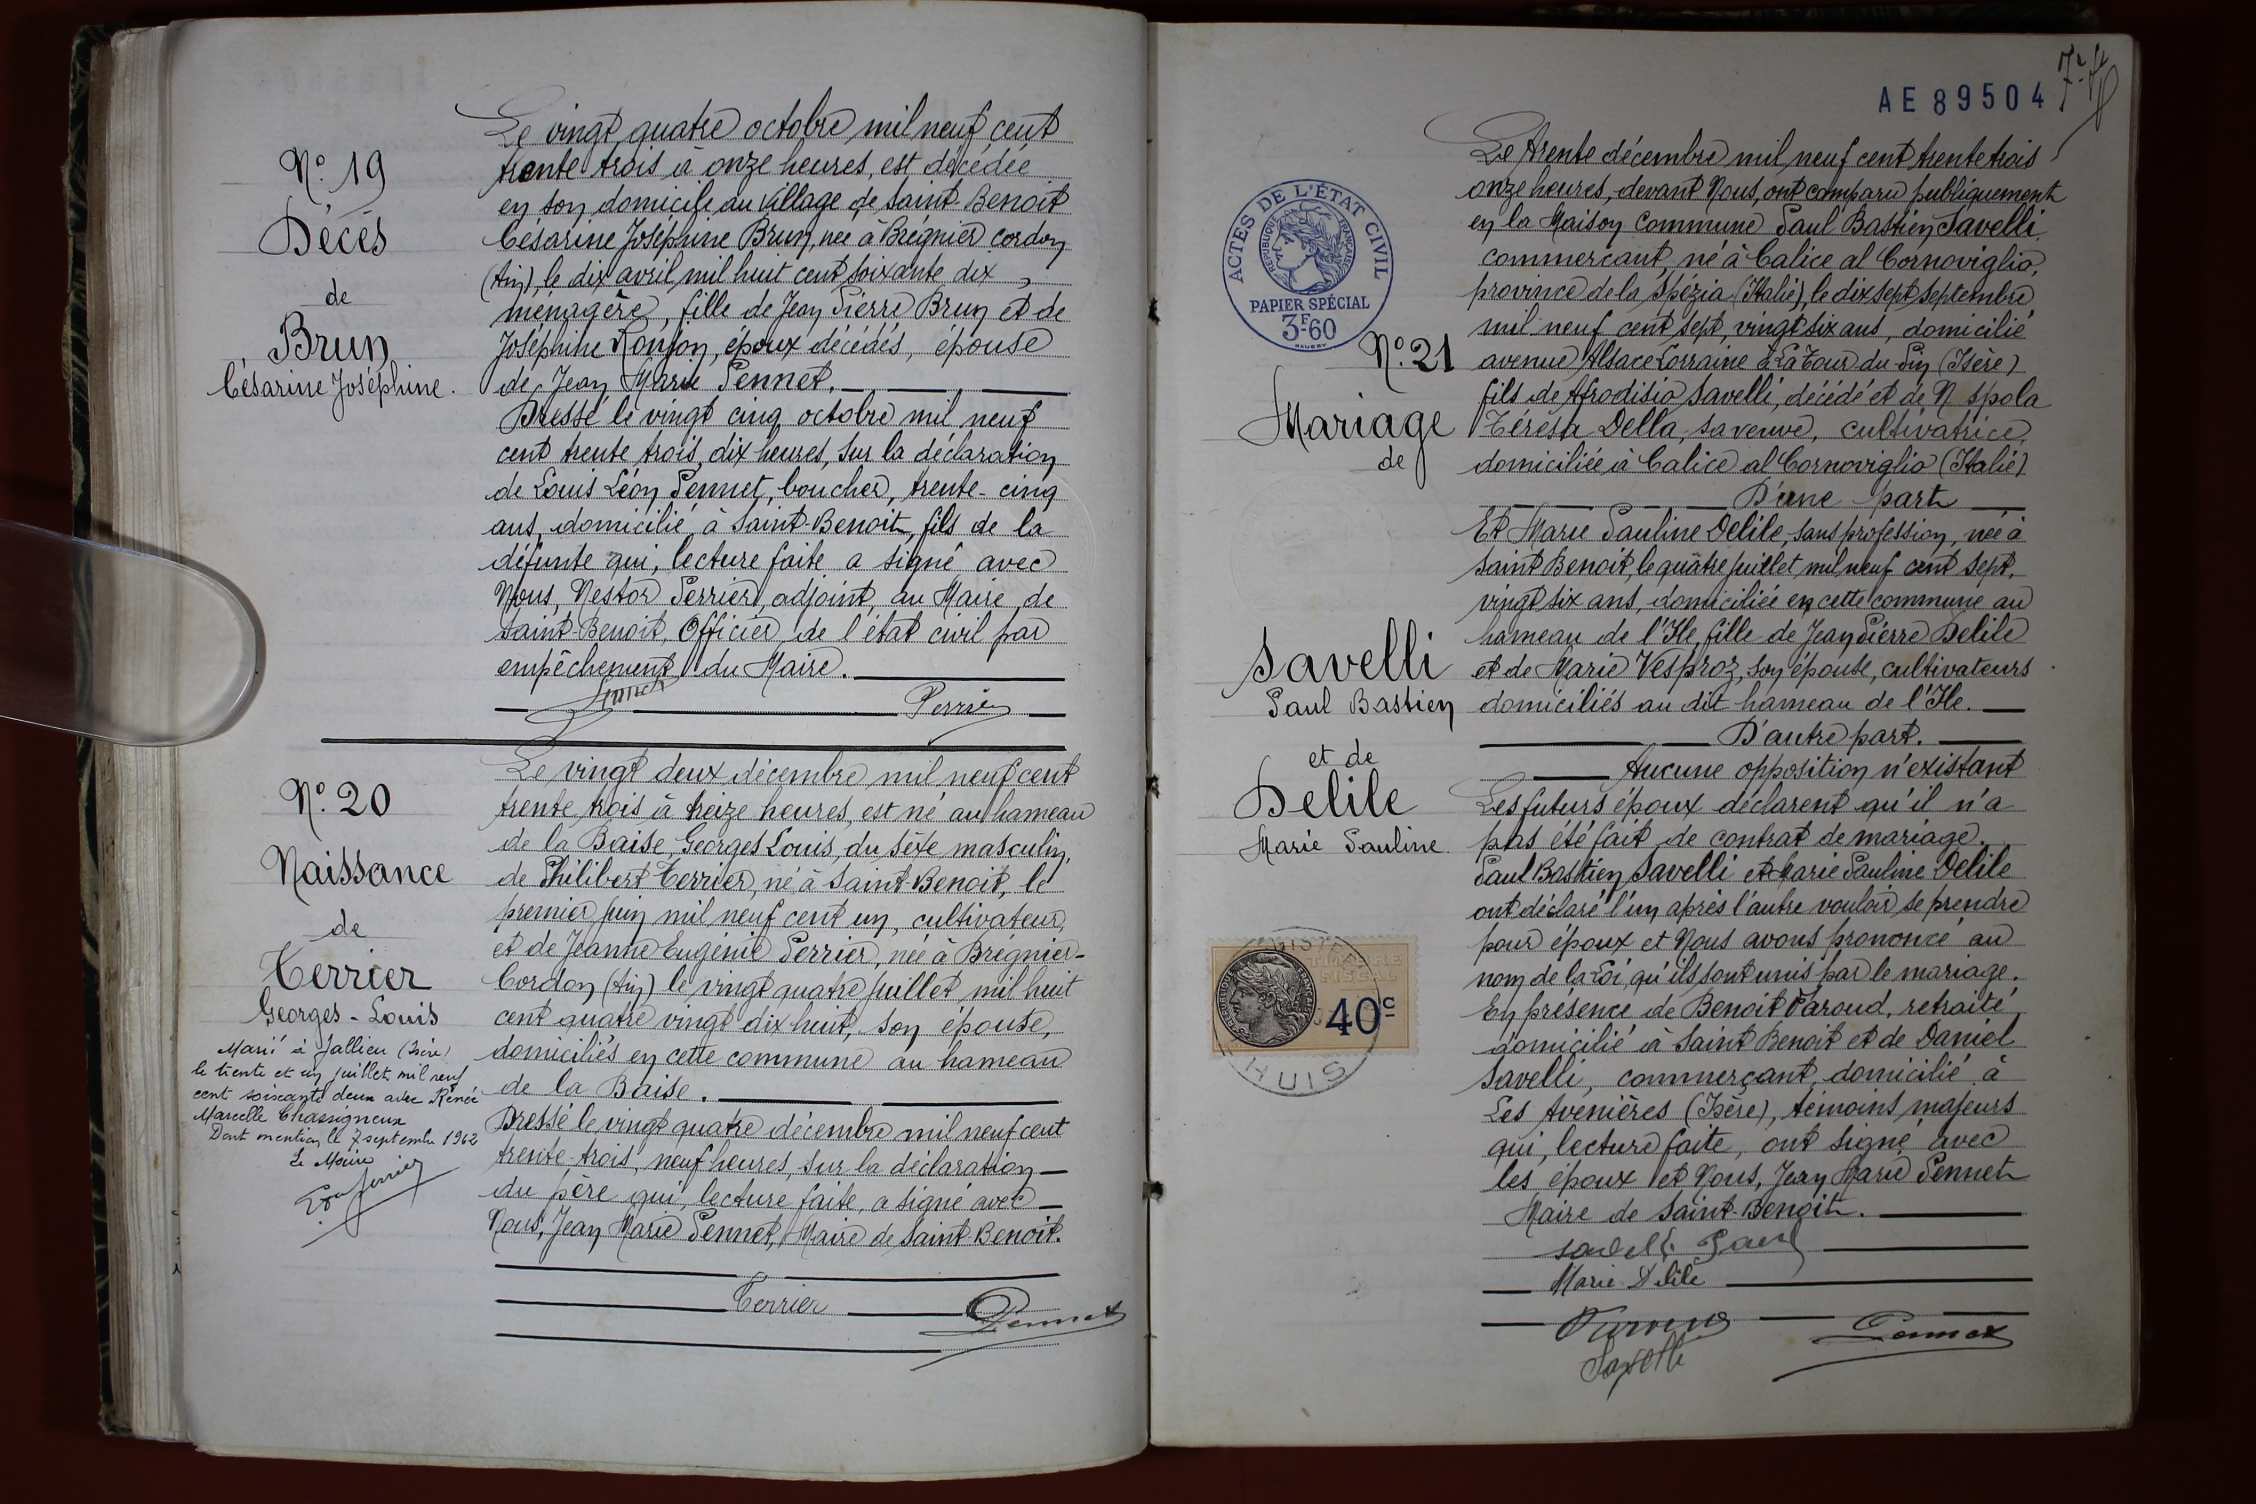 N° 19
Décès
de
Brun
Césarine Joséphine.
Le vingt quatre octobre mil neuf cent
trente trois à onze heures, est décédée
en son domicile au village de Saint-Benoit
Césarine Joséphine Brun, née à Brégnier cordon
(Ain), le dix avril mil huit cent soixante dix,
ménagère, fille de Jean Pierre Brun et de
Joséphine Ronjon, époux décédés, épouse
de Jean Marie Pennet.
Dressé le vingt cinq octobre mil neuf
cent trente trois, dix heures, sur la déclaration
de Louis Léon Pennet, boucher, trente-cinq
ans, domicilié à Saint-Benoit, fils de la
défunte qui, lecture faite a signé avec
Nous, Nestor Perrier, adjoint, au Maire de
Saint-Benoit, Officier de l'état civil par
empêchement du Maire.
Pennet Perrier
N° 20
Naissance
de
Terrier
Georges-Louis
Marié à Jallieu (Isère)
le trente et un juillet mil neuf
cent soixante deux avec Renée
Marcelle Chassigneux
Dont mention le 7 septembre 1962
Le Maire
Le vingt deux décembre mil neuf cent
trente trois à treize heures, est né au hameau
de la Baise, Georges Louis, du sexe masculin,
de Philibert Terrier, né à Saint-Benoit, le
premier juin mil neuf cent un, cultivateur,
et de Jeanne Eugénie Perrier, née à Brégnier-
Cordon (Ain) le vingt quatre juillet mil huit
cent quatre vingt dix huit, son épouse,
domiciliés en cette commune au hameau
de la Baise.
Dressé le vingt quatre décembre mil neuf cent
trente-trois, neuf heures, sur la déclaration
du père qui, lecture faite, a signé avec
Nous, Jean Marie Pennet, Maire de Saint-Benoit.
Terrier Pennet
AE 89504
ACTES DE L'ÉTAT CIVIL
RÉPUBLIQUE FRANÇAISE
PAPIER SPÉCIAL
3F60
N° 21
Mariage
de
Savelli
Paul Bastien
et de
Delile
Marie Pauline
40c
Le trente décembre mil neuf cent trente trois
onze heures, devant Nous, ont comparu publiquement
en la Maison commune Paul Bastien Savelli
commerçant, né à Calice al Cornoviglio,
province de la Spézia (Italie), le dix sept septembre
mil neuf cent sept, vingt six ans, domicilié
avenue Alsace Lorraine à La Tour du Pin (Isère)
fils de Afrodisio Savelli, décédé et de N Spola
Térésa Della, sa veuve, cultivatrice,
domiciliée à Calice al Cornoviglio (Italie)
D'une part
Et Marie Pauline Delile, sans profession, née à
Saint Benoit, le quatre juillet mil neuf cent sept,
vingt six ans, domiciliée en cette commune au
hameau de l'Ile, fille de Jean Pierre Delile
et de Marie Vesproz, son épouse, cultivateurs
domiciliés au dit hameau de l'Ile.
D'autre part.
Aucune opposition n'existant
Les futurs époux déclarent qu'il n'a
pas été fait de contrat de mariage.
Paul Bastien Savelli et Marie Pauline Delile
ont déclaré l'un après l'autre vouloir se prendre
pour époux et Nous avons prononcé au
nom de la Loi, qu'ils sont unis par le mariage.
En présence de Benoit Varoud, retraité,
domicilié à Saint Benoit et de Daniel
Savelli, commerçant, domicilié à
Les Avenières (Isère), témoins majeurs
qui, lecture faite, ont signé avec
les époux et Nous, Jean Marie Pennet
Maire de Saint-Benoit.
Savelli Paul
Marie Delile
Pennet
Savelli